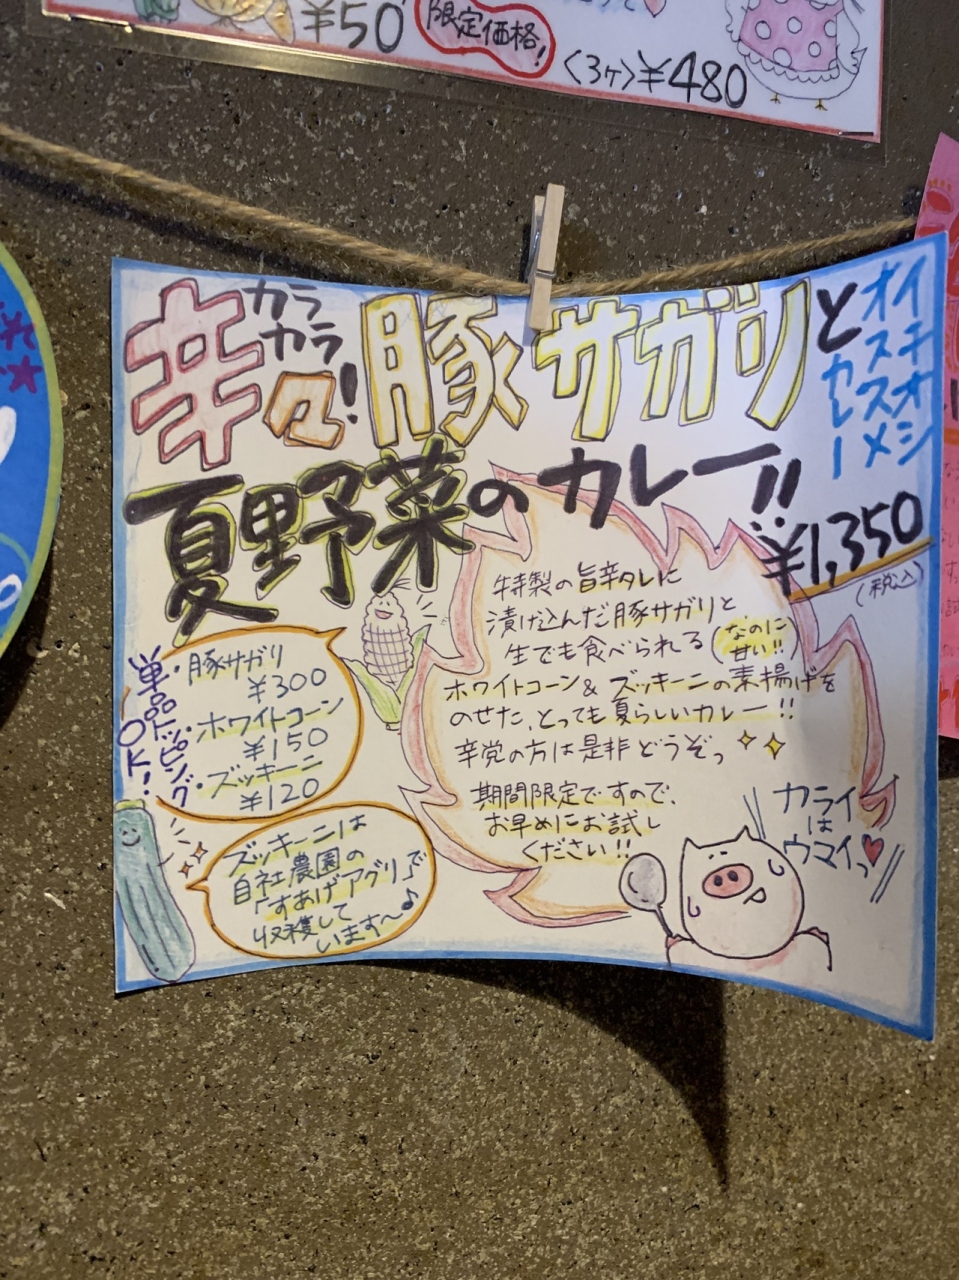 ¥50
限定価格!
<3ケ>¥480
辛々!
カラカラ
豚サガリと
イチオシ
オススメ
カレー
夏野菜のカレー!!
¥1,350
(税込)
特製の旨辛タレに
漬け込んだ豚サガリと、
生でも食べられる(なのに甘い!!)
ホワイトコーン&ズッキーニの素揚げを
のせた、とっても夏らしいカレー!!
辛党の方は是非どうぞっ
期間限定ですので、
お早めにお試し
ください!!
単品トッピング
OK!
・豚サガリ
¥300
・ホワイトコーン
¥150
・ズッキーニ
¥120
ズッキーニは
自社農園の
「すあげアグリ」で
収穫して
います〜♪
カライ
は
ウマイっ♥